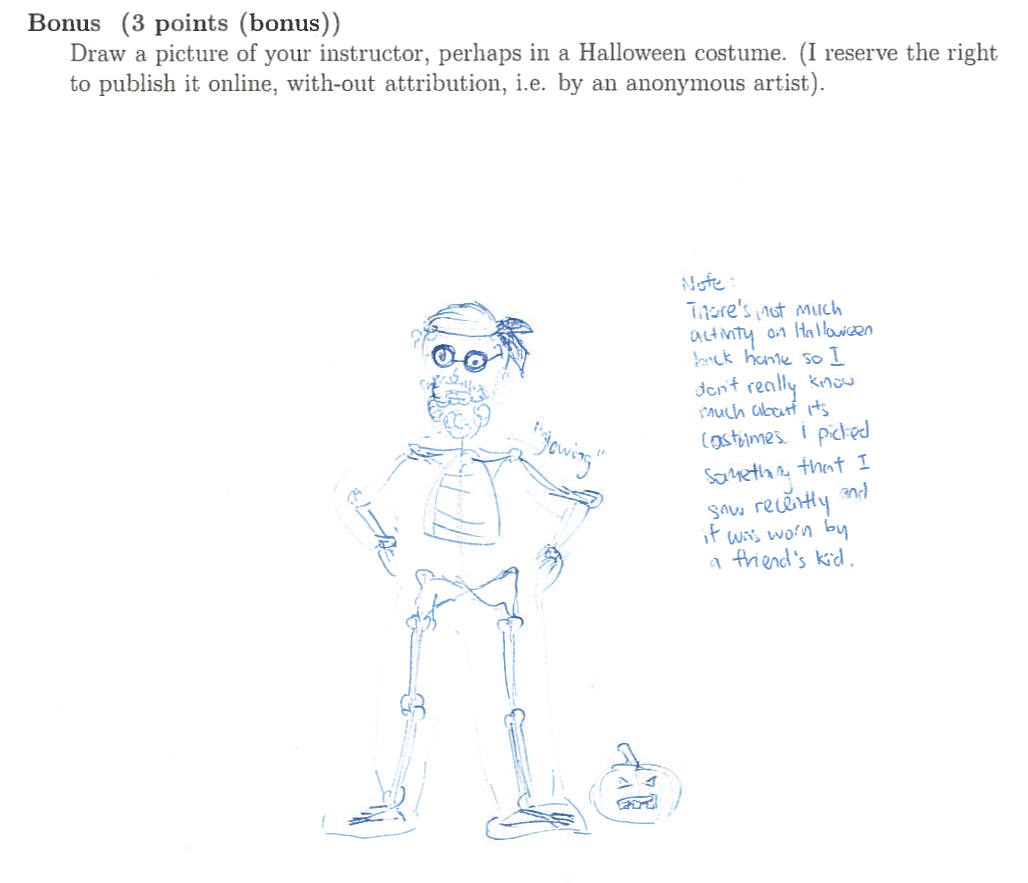 Bonus (3 points (bonus))
Draw a picture of your instructor, perhaps in a Halloween costume. (I reserve the right
to publish it online, with-out attribution, i.e. by an anonymous artist).
Note:
There's not much
activity on Halloween
back home so I
don't really know
much about its
costumes. I picked
"glowing"
something that I
saw recently and
it was worn by
a friend's kid.